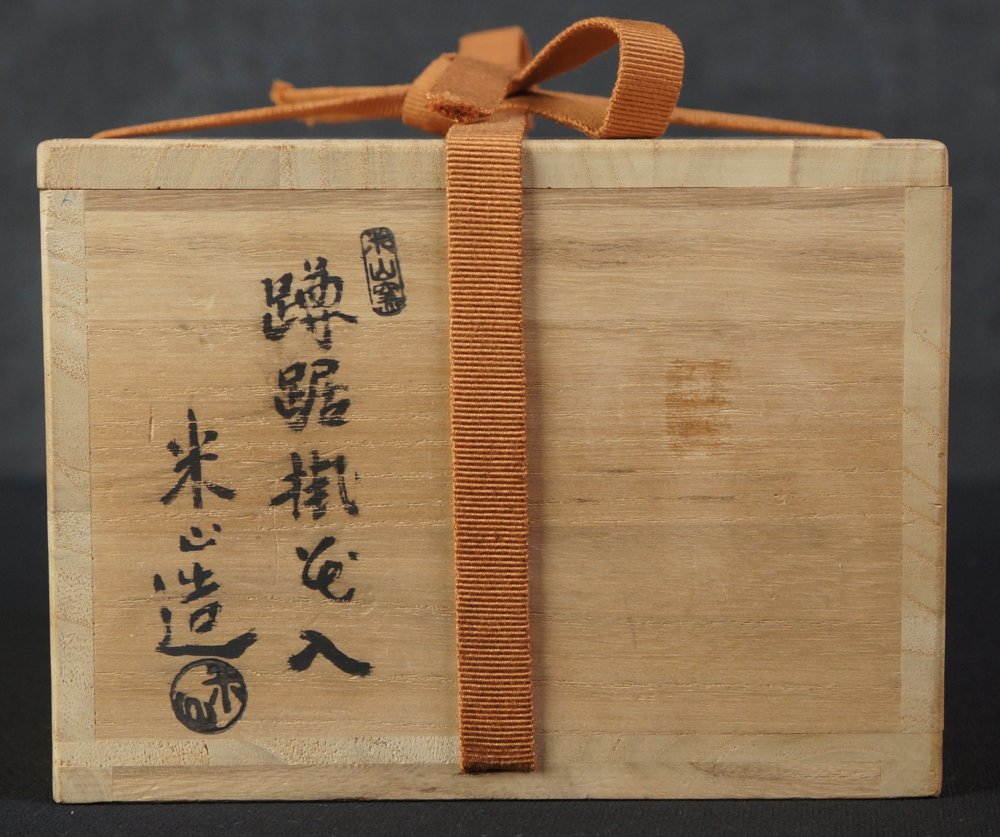 米山窯
蹲踞掛花入
米山造
米山